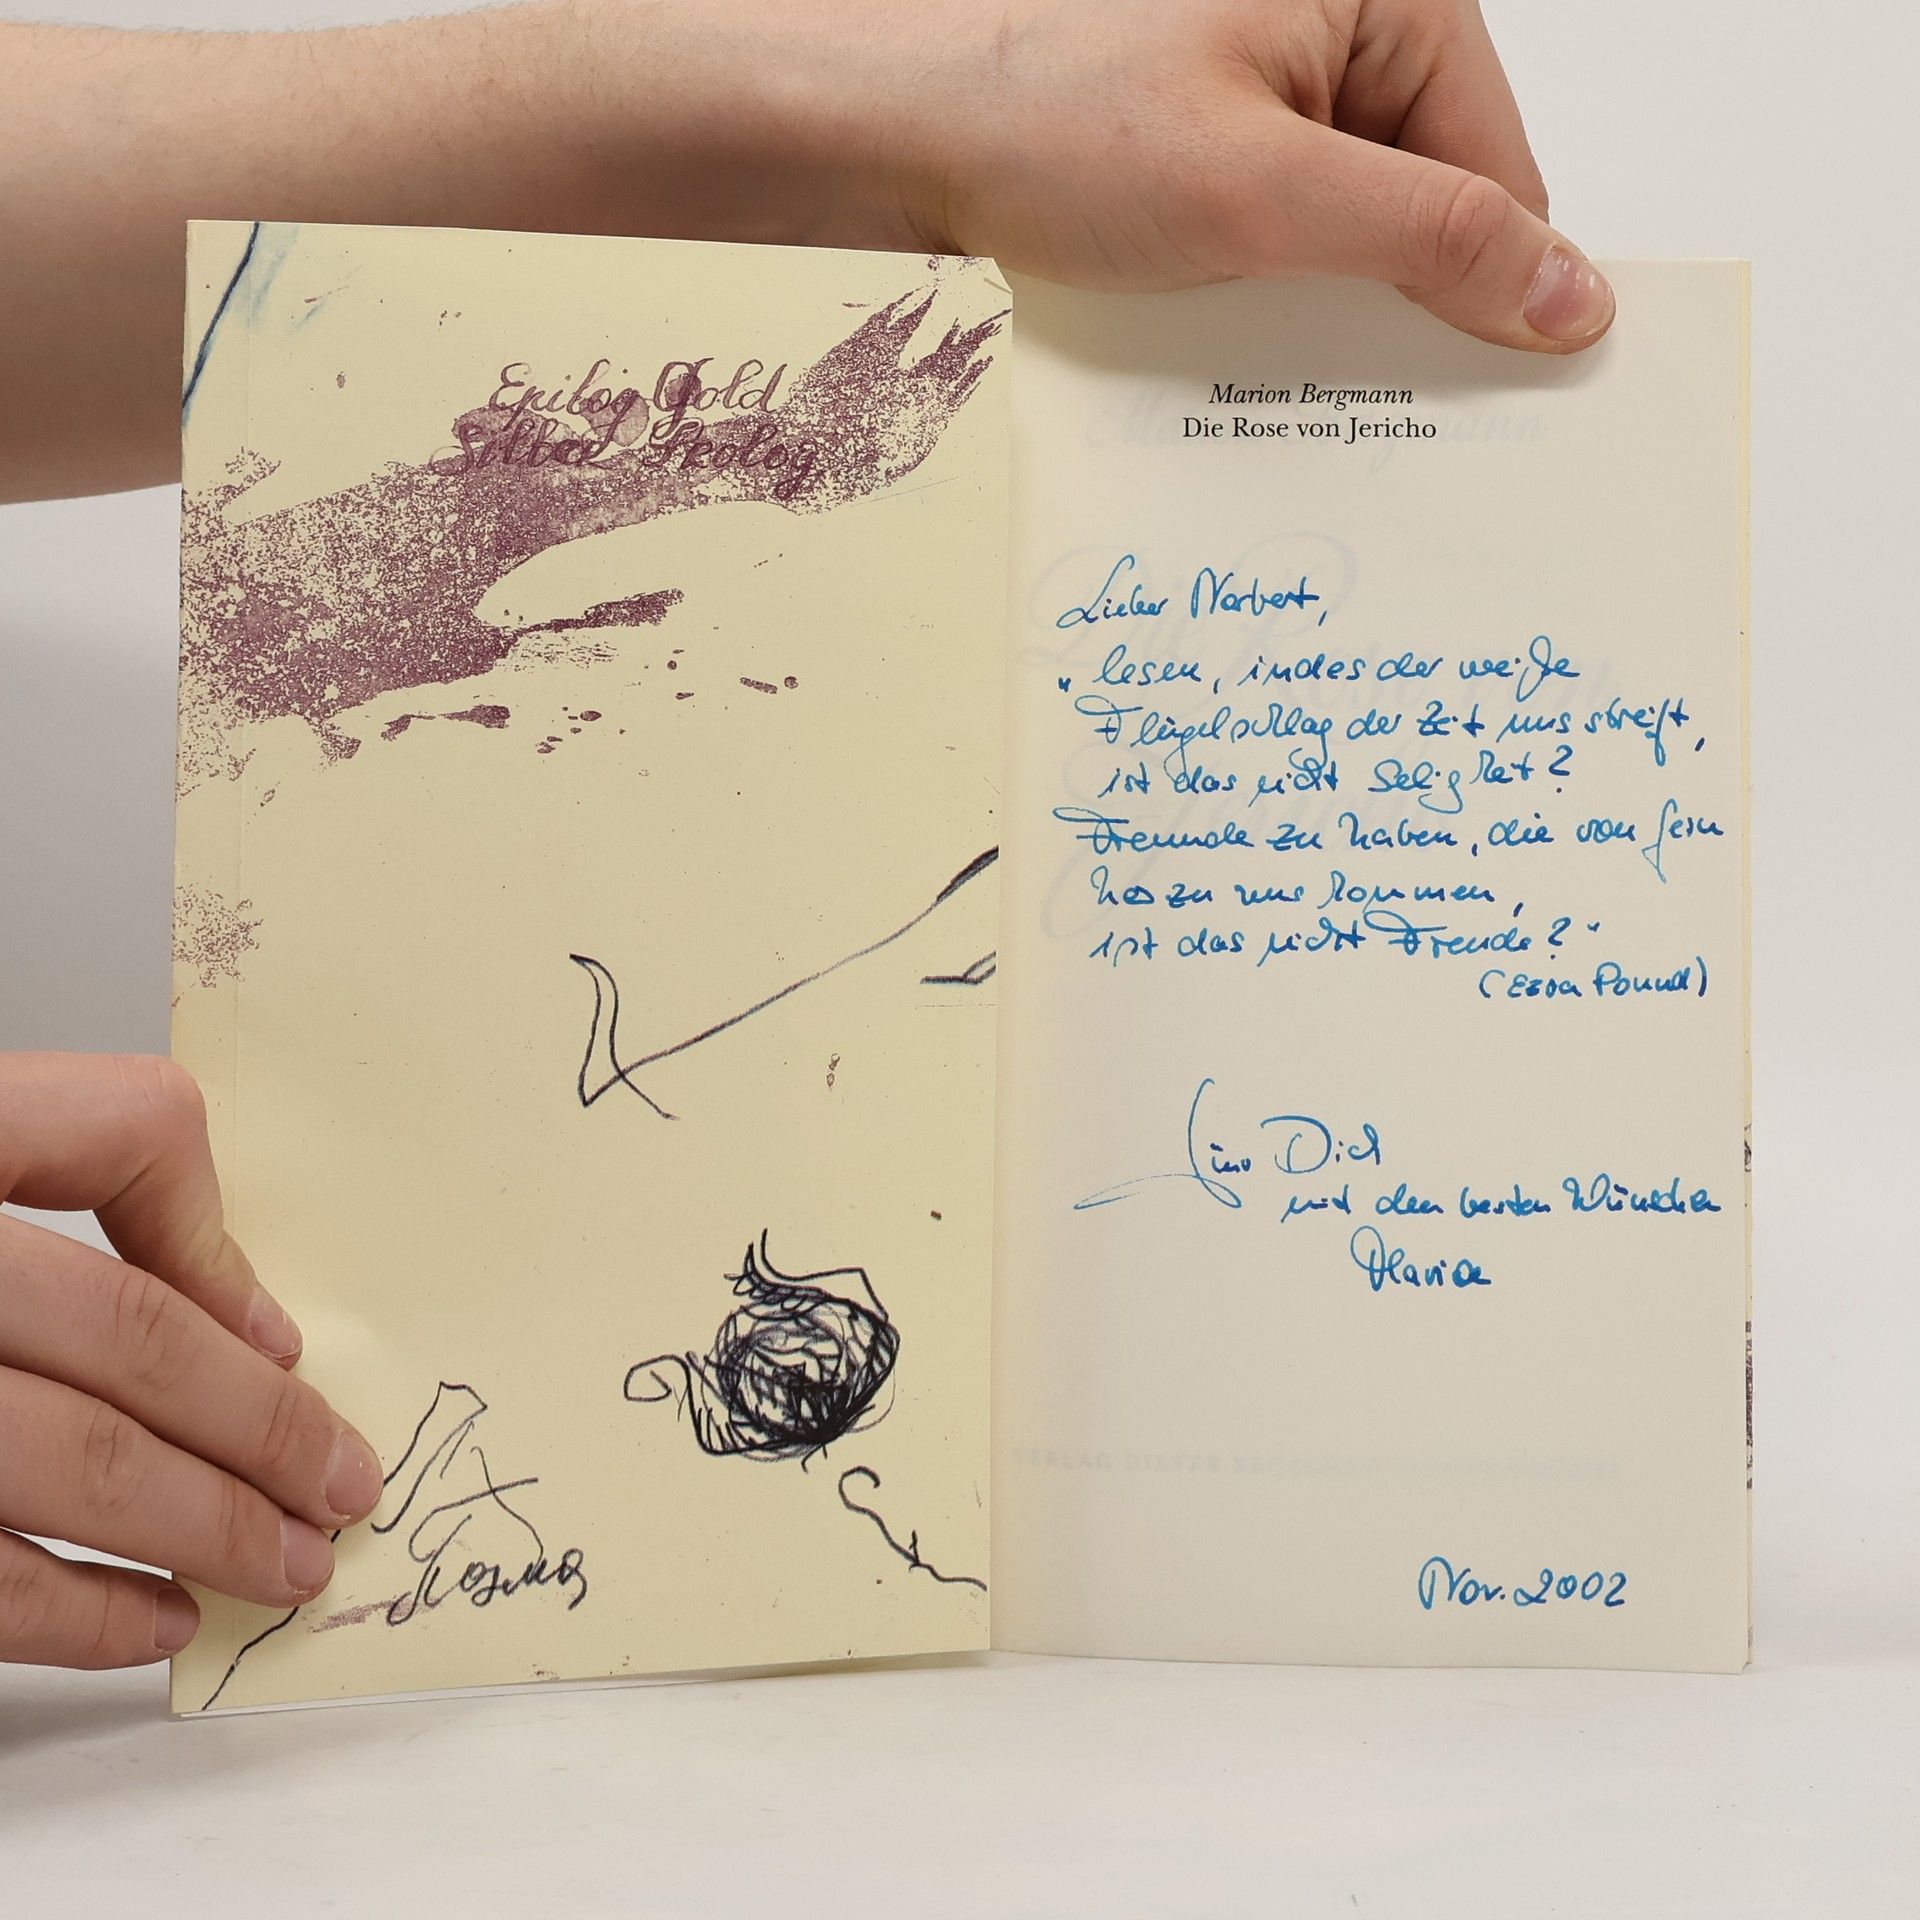 Epilog Gold
Silber Prolog
Marion Bergmann
Die Rose von Jericho
Lieber Norbert,
„lesen, indes der weiße
Flügelschlag der Zeit uns streift,
ist das nicht Seligkeit?
Freunde zu haben, die von fern
her zu uns kommen,
ist das nicht Freude?"
(Ezra Pound)
für Dich
mit den besten Wünschen
Nov. 2002